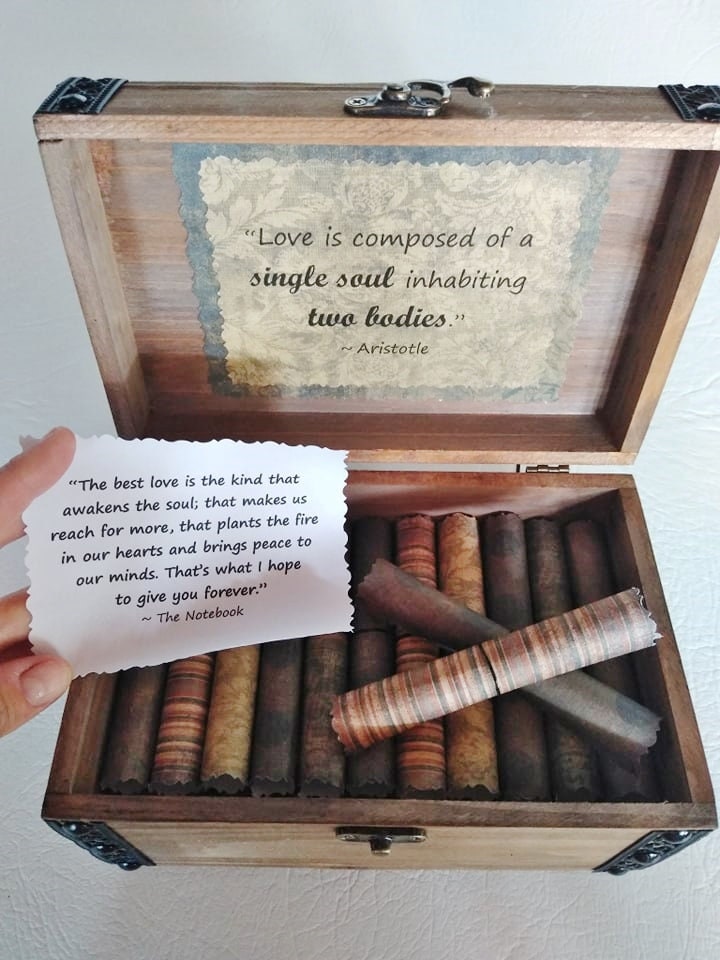 “Love is composed of a
single soul inhabiting
two bodies.”
~ Aristotle
“The best love is the kind that
awakens the soul; that makes us
reach for more, that plants the fire
in our hearts and brings peace to
our minds. That’s what I hope
to give you forever.”
~ The Notebook